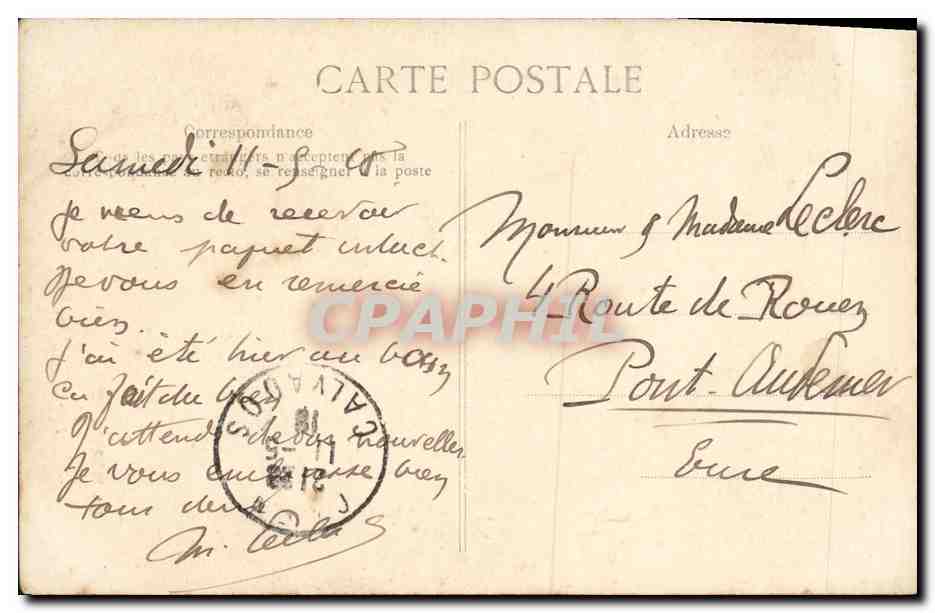 CARTE POSTALE
Correspondance
Tous les pays étrangers n'acceptent pas la
correspondance au recto, se renseigner à la poste
Adresse
Samedi 11-5-18
Je viens de recevoir
votre paquet intact.
Je vous en remercie
bien.
J'ai été hier au
fait du
J'attends de vos nouvelles
Je vous embrasse bien
tous deux
M.
Monsieur & Madame Leclerc
4 Route de Rouen
Pont-Audemer
Eure
CALVADOS
CPAPHIL